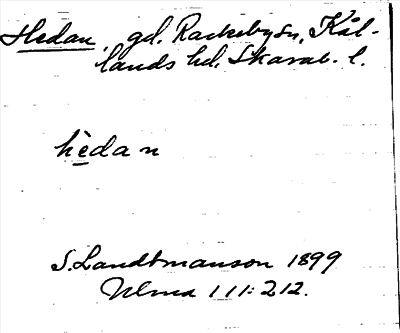 Hedan, gd. Rackeby sn, Kål-
lands hd, Skarab. l.
hèdan
S. Landtmanson 1899
Ulma 111:212.